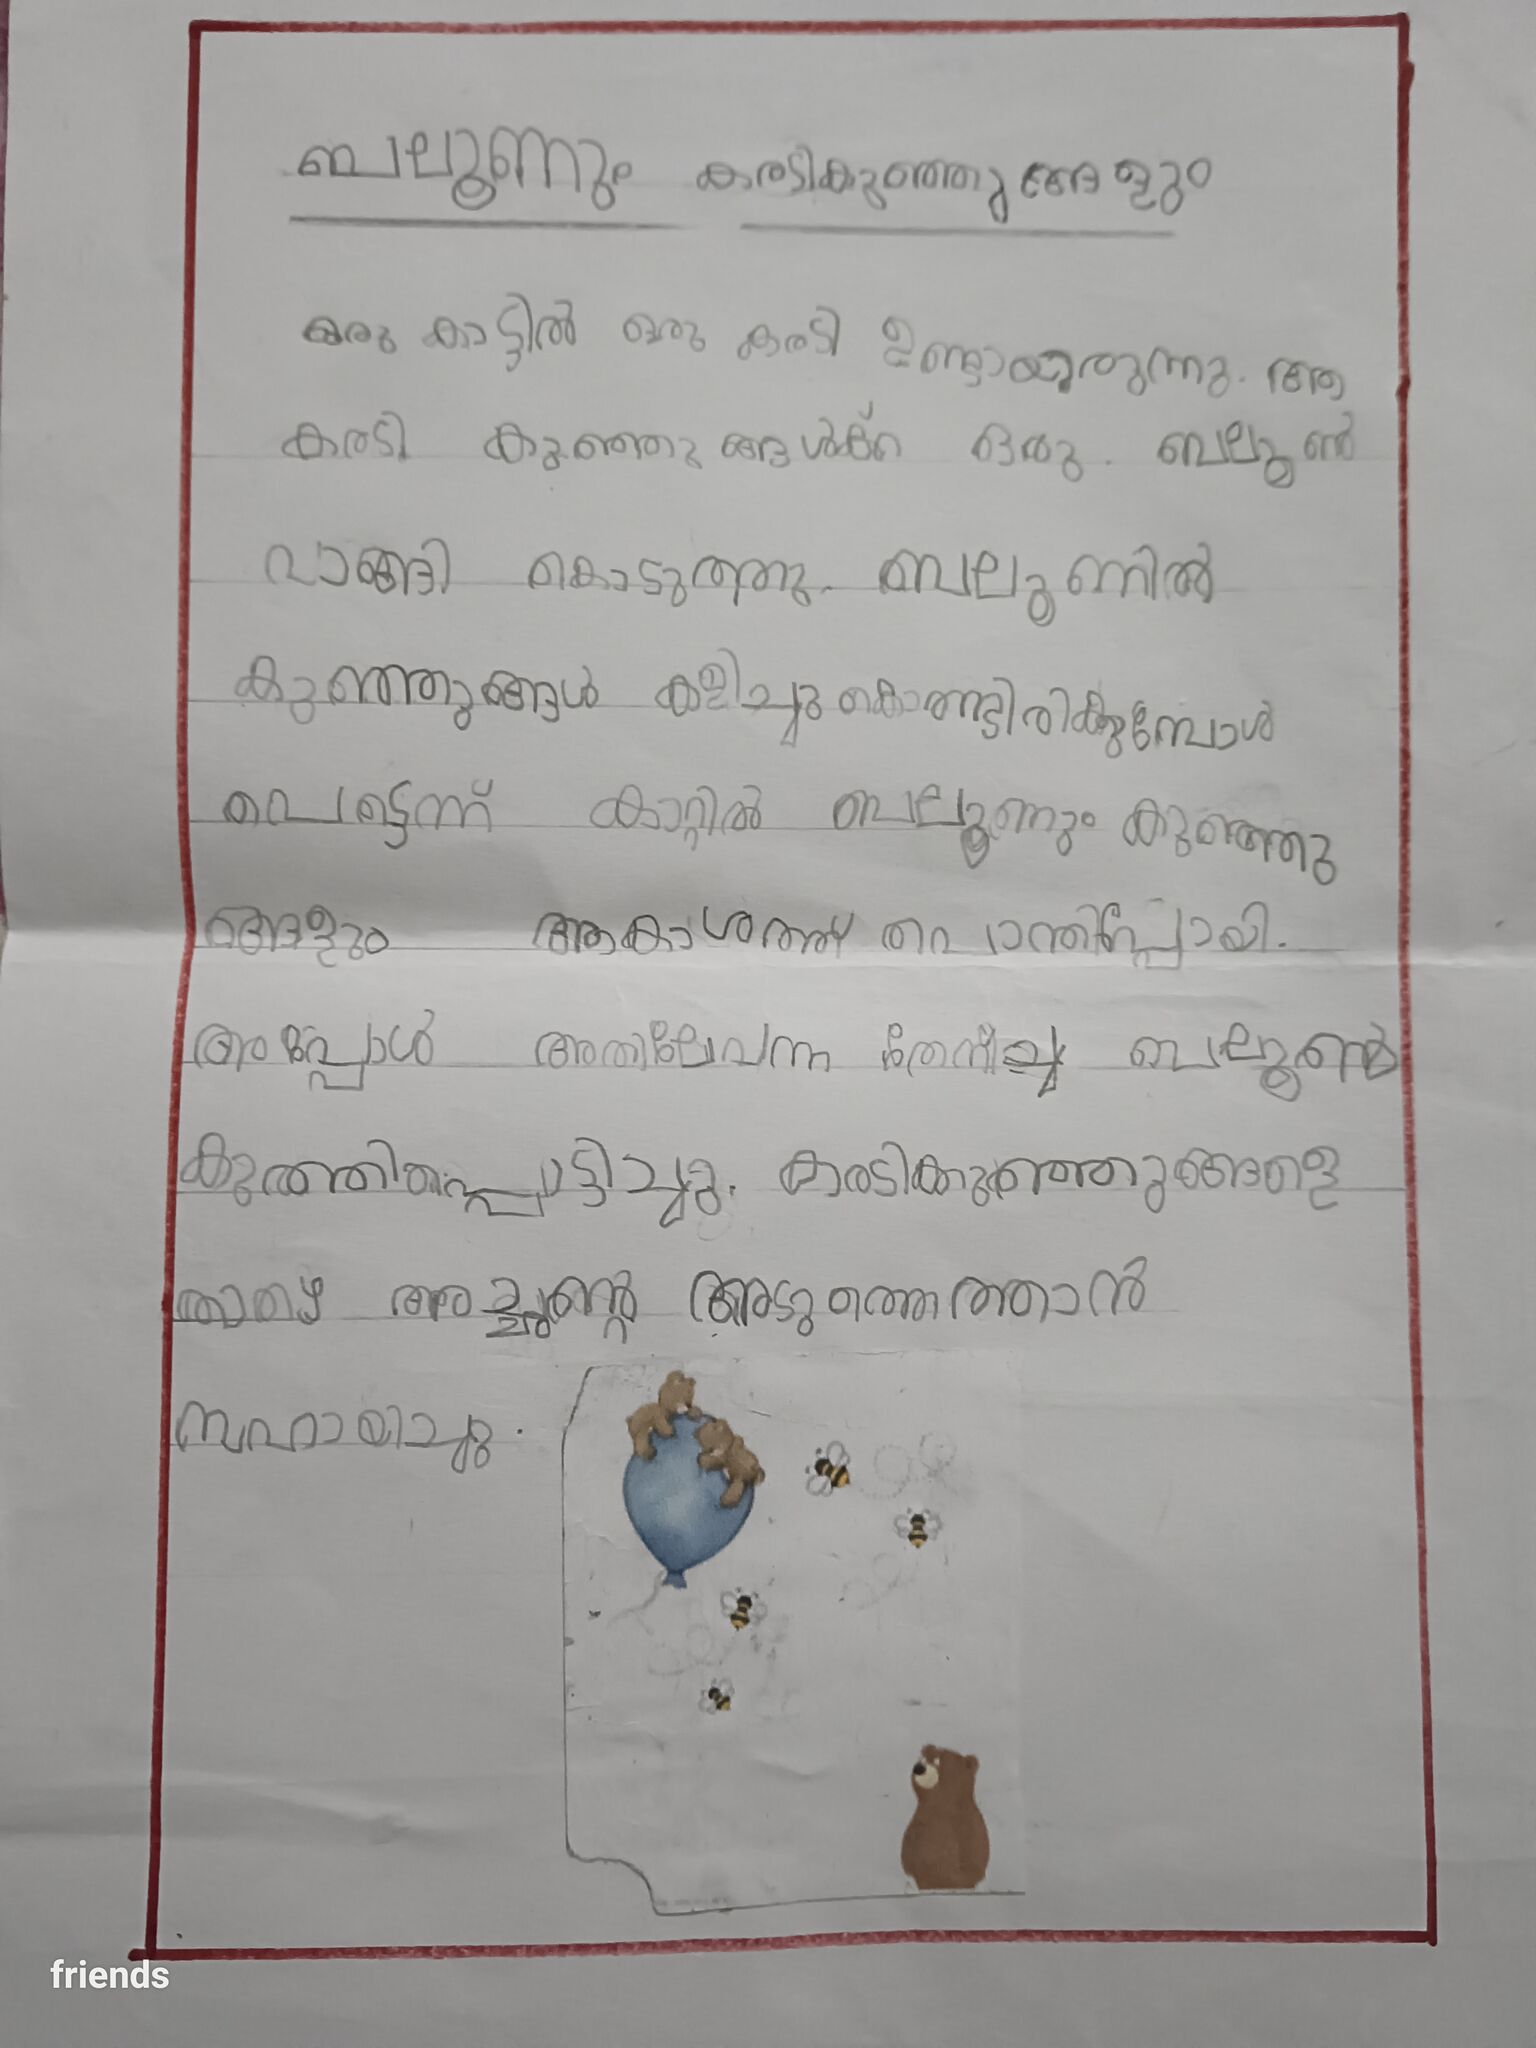 ബലൂണും കരടികുഞ്ഞുങ്ങളും
ഒരു കാട്ടിൽ ഒരു കരടി ഉണ്ടായിരുന്നു. ആ
കരടി കുഞ്ഞുങ്ങൾക്ക് ഒരു. ബലൂൺ
വാങ്ങി കൊടുത്തു. ബലൂണിൽ
കുഞ്ഞുങ്ങൾ കളിച്ചുകൊണ്ടിരിക്കുമ്പോൾ
പെട്ടെന്ന് കാറ്റിൽ ബലൂണും കുഞ്ഞു
ങ്ങളും ആകാശത്ത് പൊന്തിപ്പോയി.
അപ്പോൾ അതിലേവന്ന തേനീച്ച ബലൂൺ
കുത്തിപ്പൊട്ടിച്ചു. കരടികുഞ്ഞുങ്ങളെ
താഴെ അച്ഛന്റെ അടുത്തെത്താൻ
സഹായിച്ചു.
friends